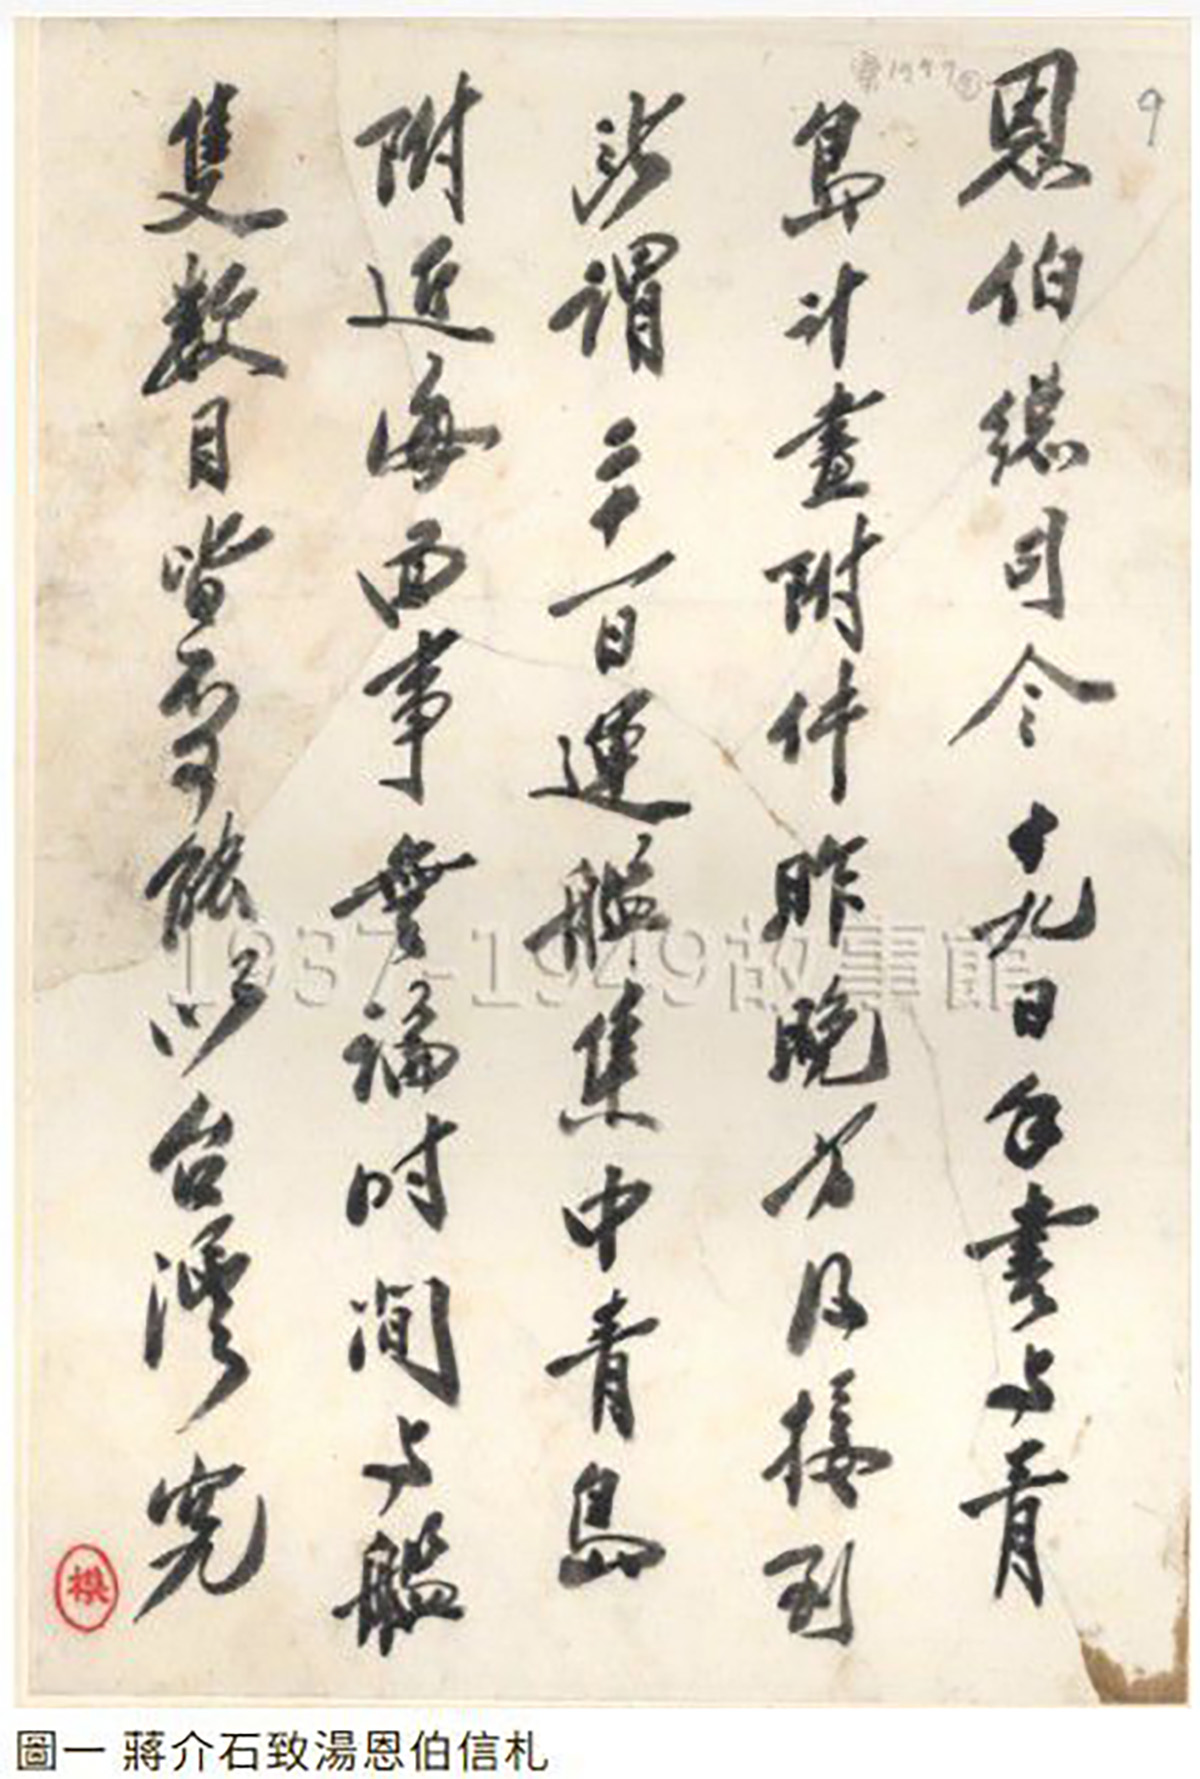 9
1949
恩伯總司令十九日手書与青
島計畫附件昨晚方得接到
所謂二十一日運艦集中青島
附近海面事無論時間与艦
隻數目皆不可能以台灣究
1937-1949故事館
圖一 蔣介石致湯恩伯信札